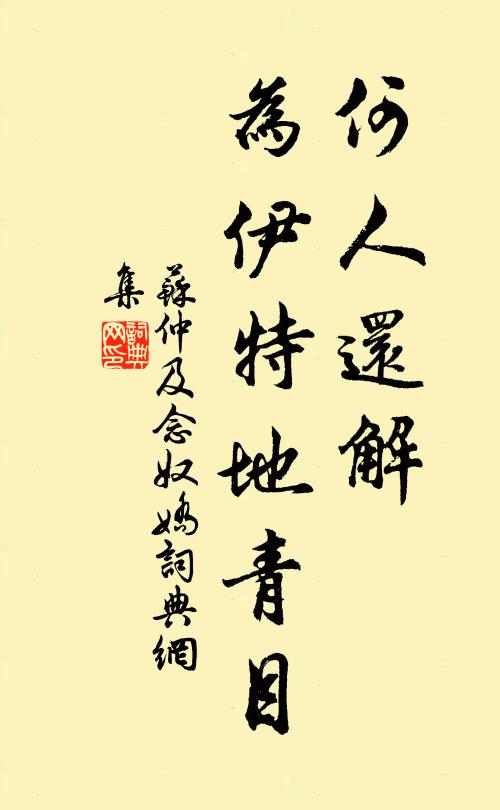 何人還解
為伊特地青目
蘇仲及念奴嬌詞典網
集
詞典
网印